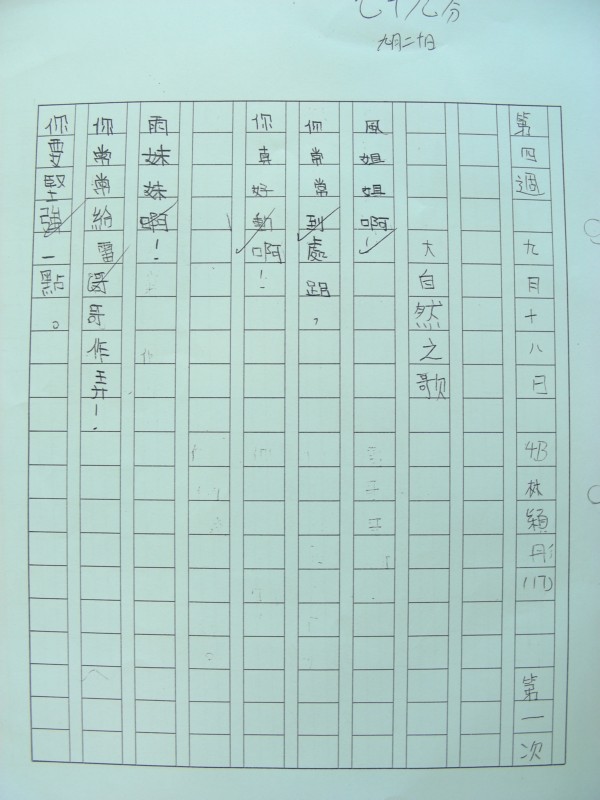 七十九分
九月二十日
第四週 九月十八日 4B 林穎彤 (17) 第一次
大自然之歌
風姐姐啊!
你常常到處跑,
你真好動啊!
雨妹妹啊!
你常常給雷哥哥作弄!
你要堅強一點。